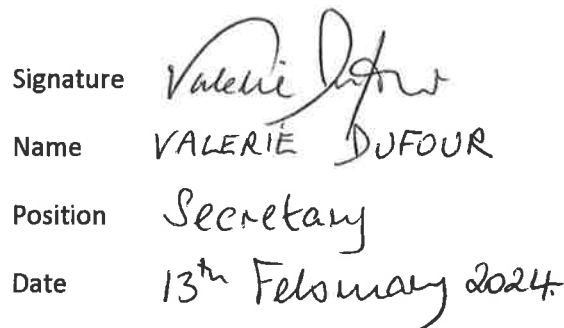 Signature Valerie Dufour
Name VALERIE DUFOUR
Position Secretary
Date 13th February 2024.